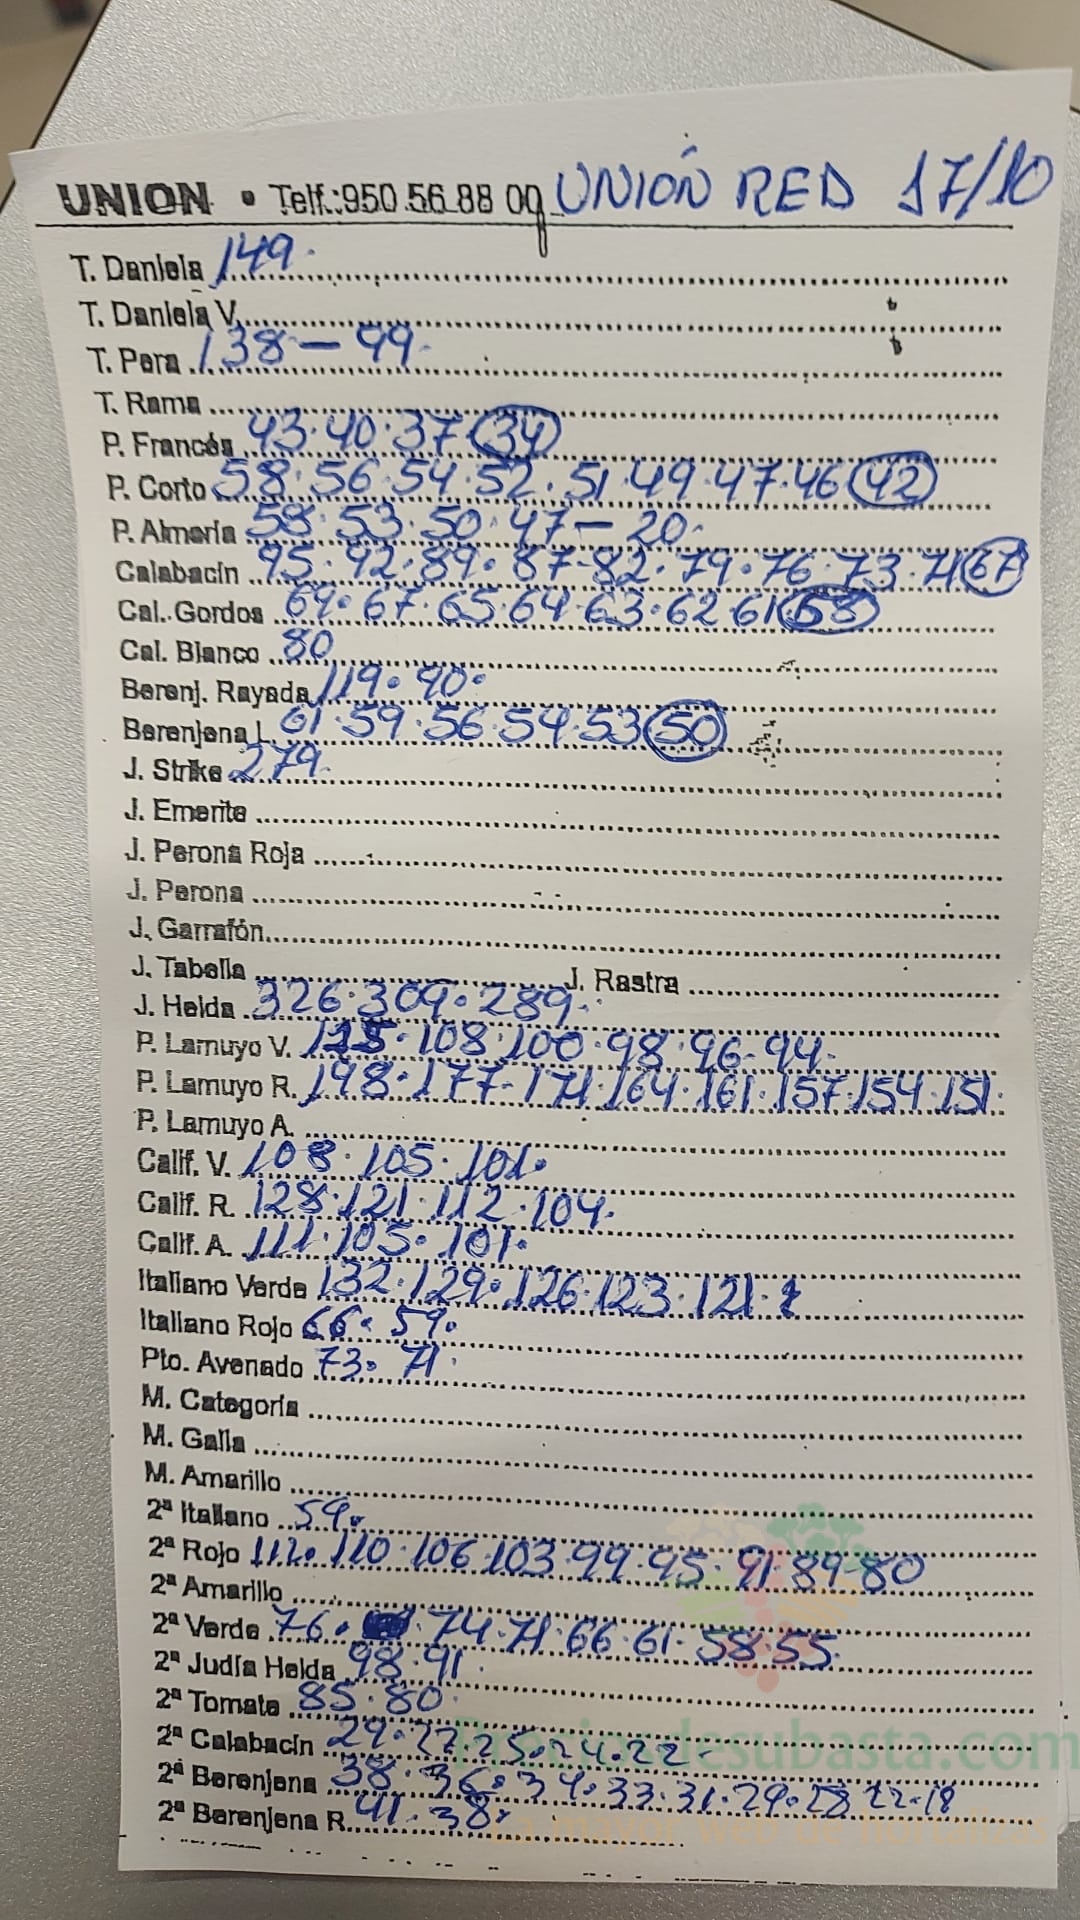 UNION • Telf.:950 56 88 09 UNIÓN RED 17/10
T. Daniela 149.
T. Daniela V.
T. Pera 138 - 99.
T. Rama
P. Francés 43.40.37 34
P. Corto 58.56.54.52.51.49.47.46 42
P. Almería 58.53.50.47 - 20.
Calabacín 95.92.89.87-82.79.76.73.71 67
Cal. Gordos 69.67.65.64.63.62.61 58
Cal. Blanco 80
Berenj. Rayada 119.90.
Berenjena L. 61.59.56.54.53 50
J. Strike 279.
J. Emerite
J. Perona Roja
J. Perona
J. Garrafón
J. Tabella J. Rastra
J. Helda 326.309.289.
P. Lamuyo V. 108.100.98.96-94.
P. Lamuyo R. 198.177-171.164.161.157.154.151.
P. Lamuyo A.
Calif. V. 108.105.101.
Calif. R. 128.121.112.104.
Calif. A. 111.105.101.
Italiano Verde 132.129.126.123.121.
Italiano Rojo 66.59.
Pto. Avenado 73.71.
M. Categoría
M. Galla
M. Amarillo
2ª Italiano 59.
2ª Rojo 112.110.106.103.99.95.91.89-80
2ª Amarillo
2ª Verde 76.74.71.66.61.58.55.
2ª Judía Helda 98.91.
2ª Tomate 85.80.
2ª Calabacín 29.27.25.24.22-
2ª Berenjena 38.36.34.33.31.29.28 22-18
2ª Berenjena R. 41.38.
Preciosdesubasta.com
La mayor web de hortalizas